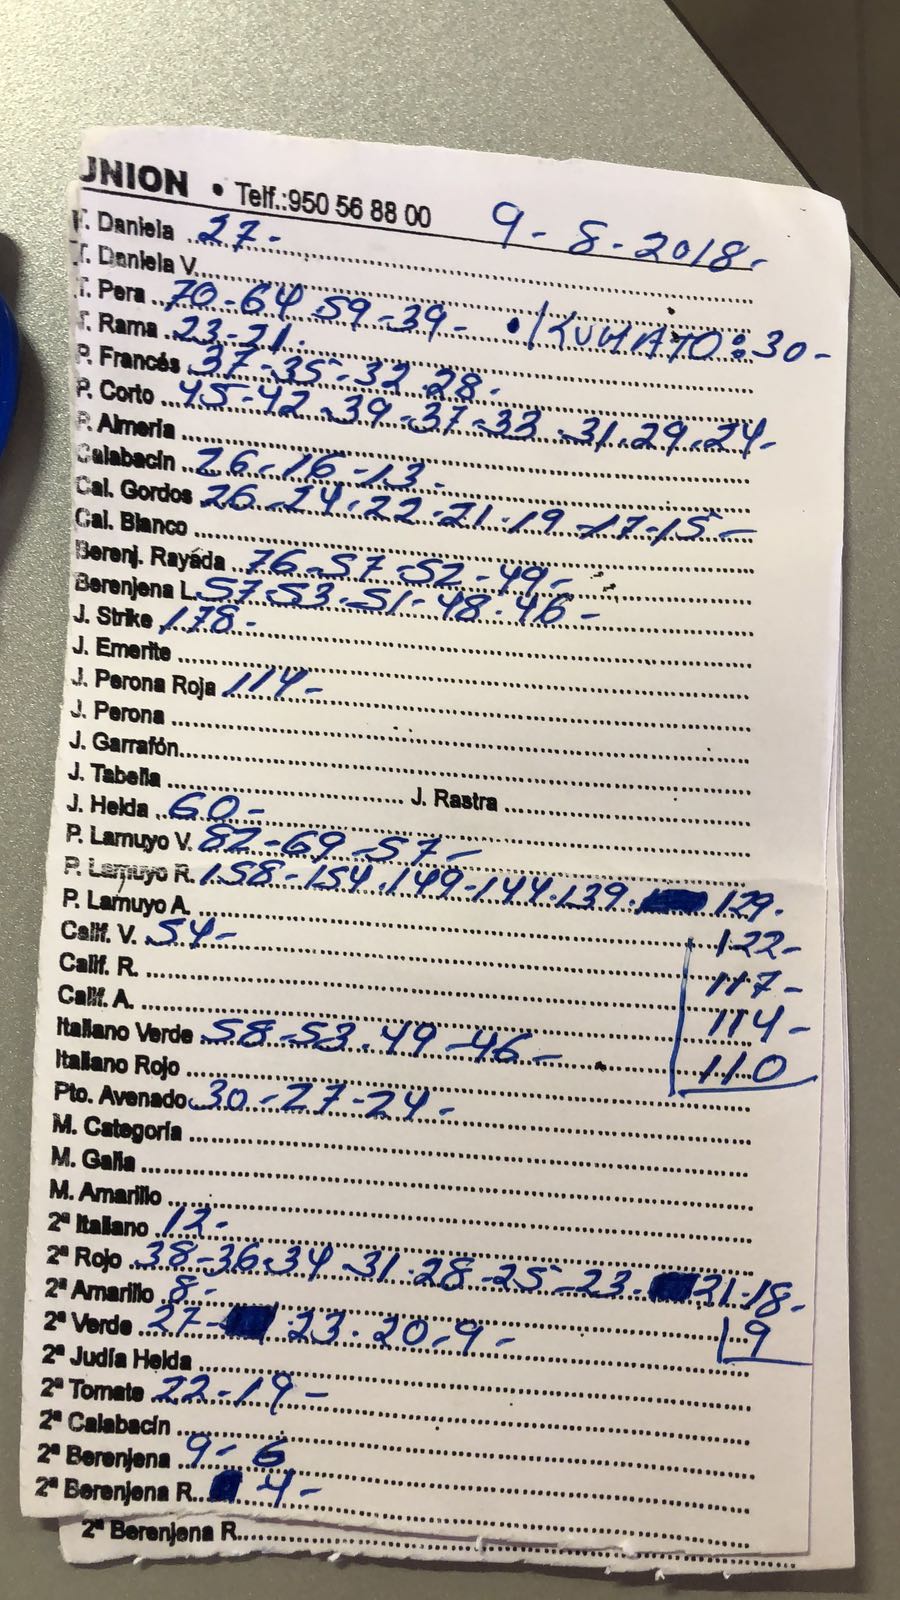 UNION • Telf.:950 56 88 00 9-8-2018-
T. Daniela 27-
T. Daniela V.
T. Pera 70-64.59-39- • KUMATO: 30-
T. Rama 23-21.
P. Francés 37-35-32.28-
P. Corto 45-42.39-37-33.31.29.24-
P. Almería
Calabacín 26.16-13.
Cal. Gordos 26-24.22-21.19-17-15-
Cal. Blanco
Berenj. Rayáda 76-57-52-49-
Berenjena L. 57.53.51-48.46-
J. Strike 178-
J. Emerite
J. Perona Roja 114-
J. Perona
J. Garrafón
J. Tabella J. Rastra
J. Helda 60-
P. Lamuyo V. 82-69-57-
P. Lamuyo R. 158-154.149-144.139. 129.
P. Lamuyo A. 122-
Calif. V. 54- 117-
Calif. R. 114-
Calif. A. 110
Italiano Verde 58-53.49-46-
Italiano Rojo
Pto. Avenado 30-27-24-
M. Categoría
M. Galia
M. Amarillo
2ª Italiano 12-
2ª Rojo 38-36.34-31.28-25-23. 21.18-
2ª Amarillo 8- 9
2ª Verde 27- .23.20-9-
2ª Judía Helda
2ª Tomate 22-19-
2ª Calabacín
2ª Berenjena 9-6
2ª Berenjena R. 4-
2ª Berenjena R.